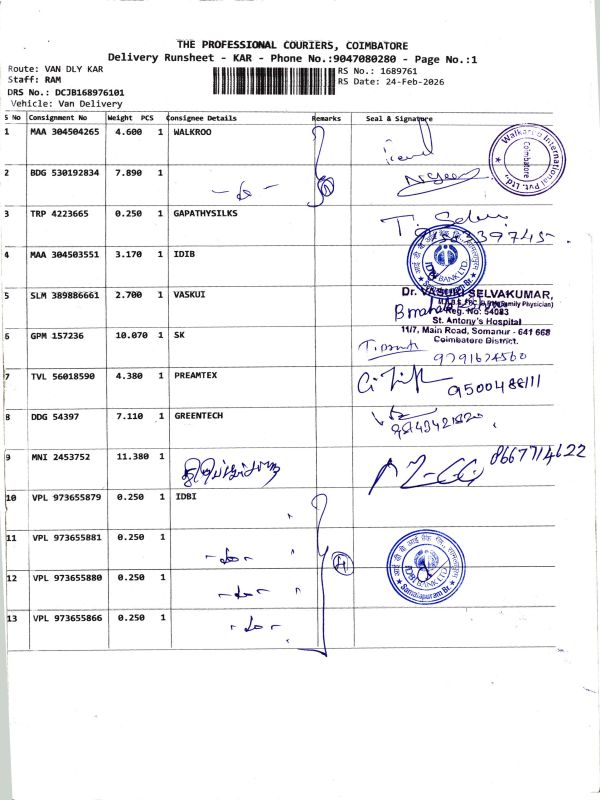 THE PROFESSIONAL COURIERS, COIMBATORE
Delivery Runsheet - KAR - Phone No.:9047080280 - Page No.:1
Route: VAN DLY KAR
RS No.: 1689761
Staff: RAM
RS Date: 24-Feb-2026
DRS No.: DCJB168976101
Vehicle: Van Delivery
S No Consignment No Weight PCS Consignee Details Remarks Seal & Signature
1 MAA 304504265 4.600 1 WALKROO
Walkaroo International Pvt. Ltd., Coimbatore
2 BDG 530192834 7.890 1 -do- 2
3 TRP 4223665 0.250 1 GAPATHYSILKS
4 MAA 304503551 3.170 1 IDIB
IDBI BANK LTD.
5 SLM 389886661 2.700 1 VASKUI
Dr. VASUKI SELVAKUMAR,
Reg. No: 54083
St. Antony's Hospital
11/7, Main Road, Somanur - 641 668
Coimbatore District.
6 GPM 157236 10.070 1 SK
9791674560
7 TVL 56018590 4.380 1 PREAMTEX
9500488111
8 DDG 54397 7.110 1 GREENTECH
9 MNI 2453752 11.380 1
8667714622
10 VPL 973655879 0.250 1 IDBI
11 VPL 973655881 0.250 1 -do- " 4
IDBI BANK LTD. Samalapuram Br
12 VPL 973655880 0.250 1 -do- "
13 VPL 973655866 0.250 1 -do-